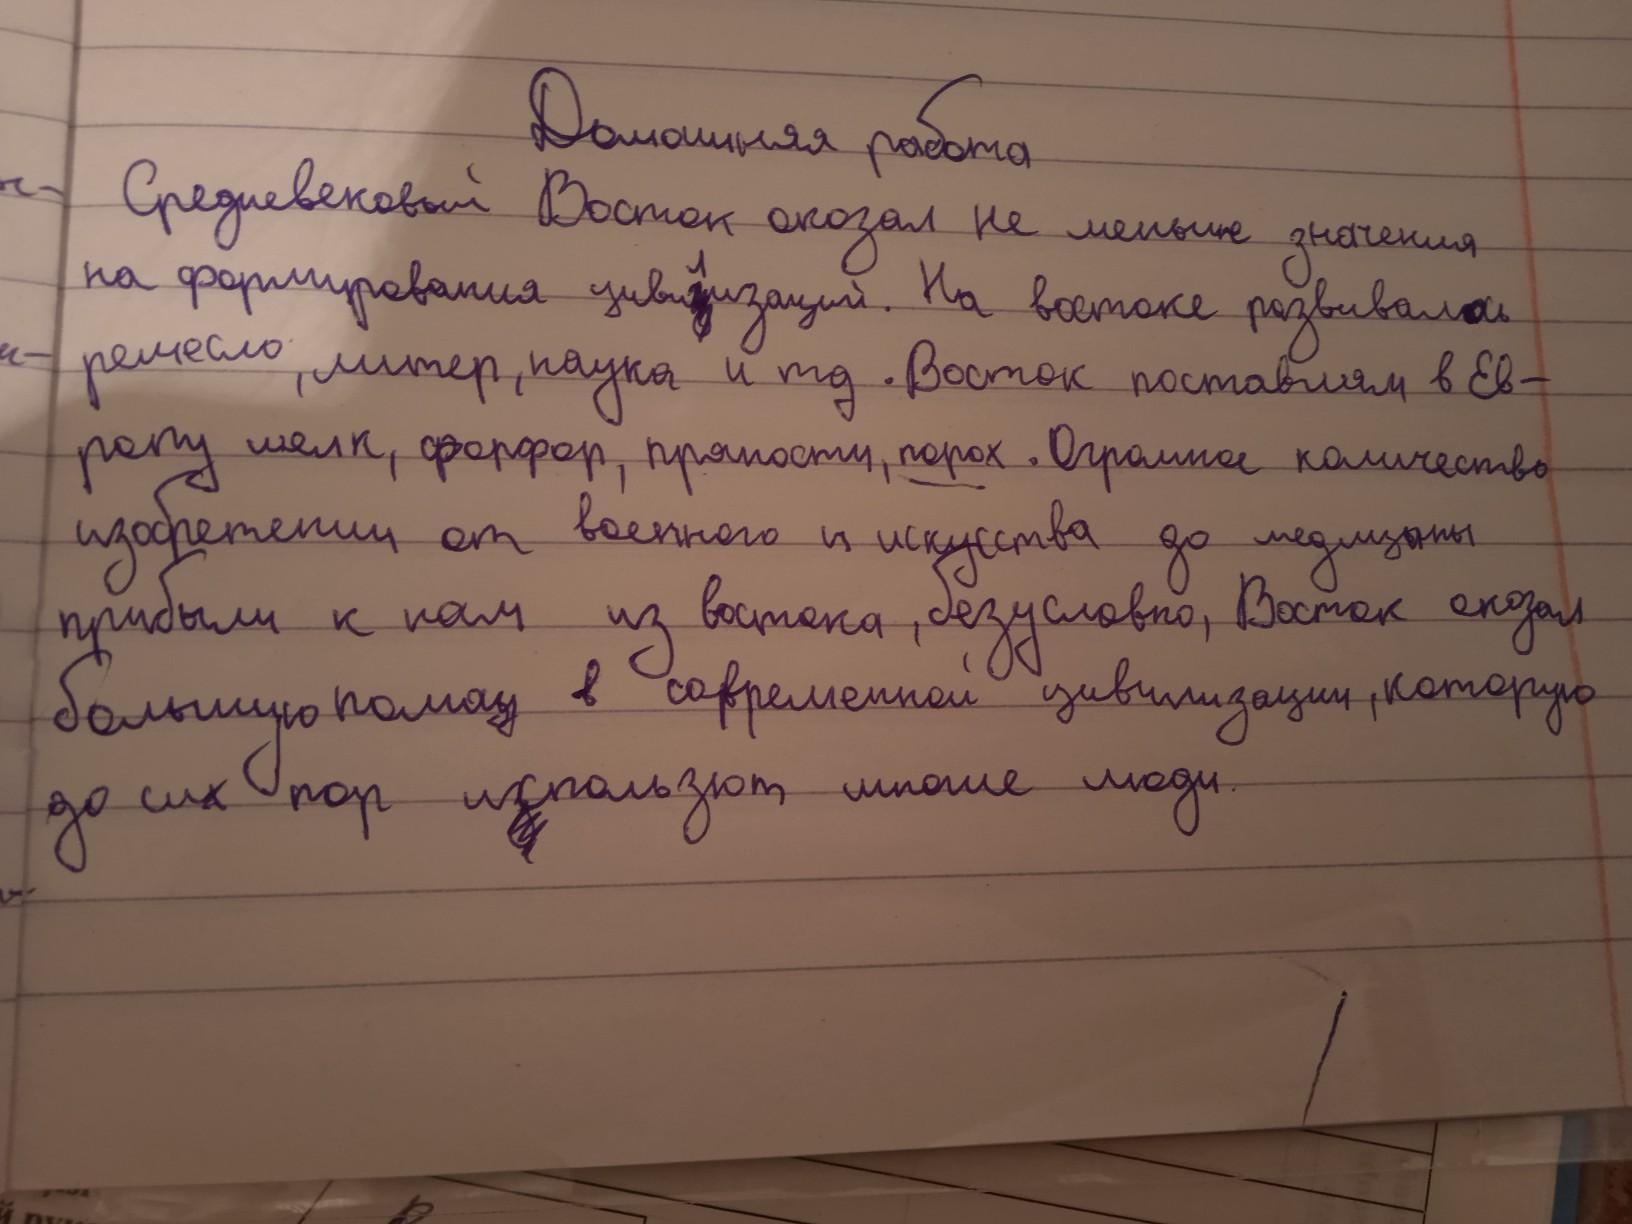 Домашняя работа
Средневековый Восток оказал не меньше значения
на формирования цивилизаций. На востоке развивалось
ремесло, литер, наука и тд. Восток поставлям в Ев-
ропу шелк, фарфор, пряности, порох. Огромное количество
изобретении от военного и искусства до медицыны
прибыли к нам из востока, безусловно, Восток оказал
большую помощ в современной цивилизации, которую
до сих пор использют многие люди.